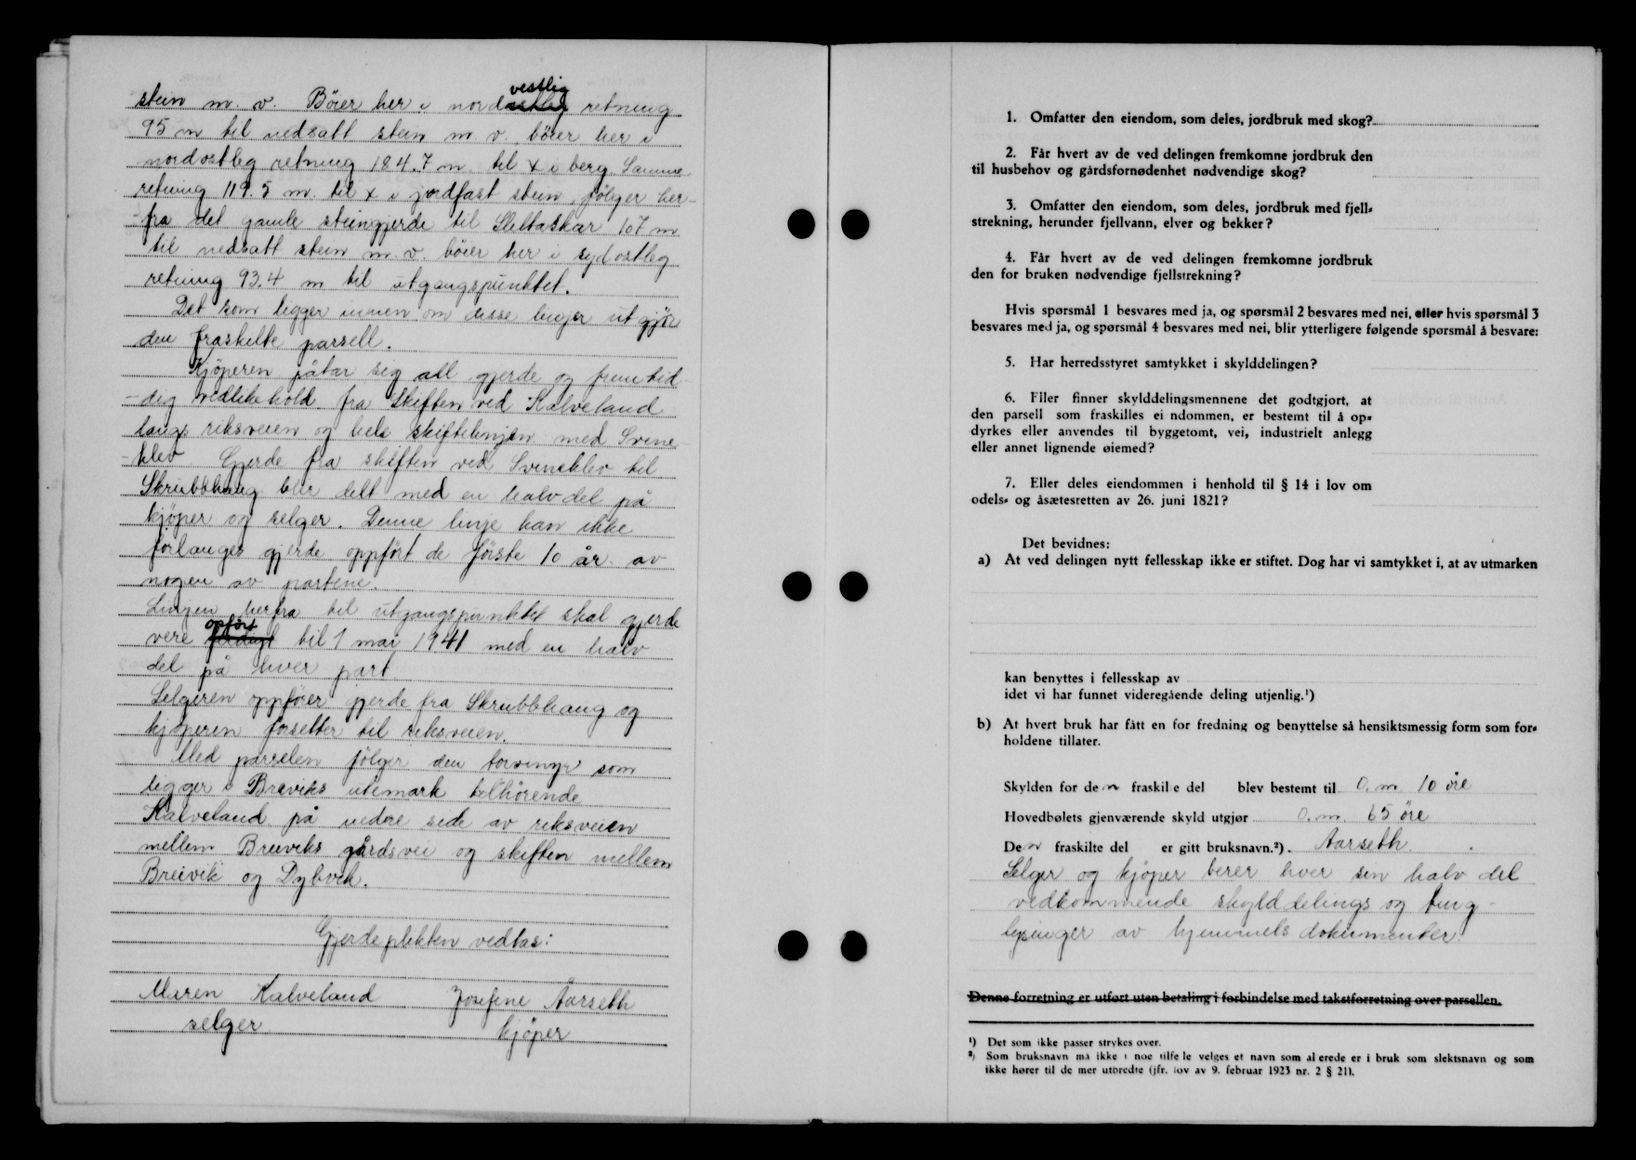 stein m. v. Böier her i nordvestlig retning
95 m til nedsatt stein m. v. böier her i
nordostleg retning 184.7 m til x i berg Samme
retning 119.5 m. til x i jordfast stein, fölger her-
-fra det gamle steingjerde til Slettaskar 107 m
til nedsatt stein m. v. böier her i sydostleg
retning 93.4 m til utgangspunktet.
Det som ligger innen om disse linjer utgjör
den fraskilte parsell.
Kjöperen påtar sig alt gjerde og fremtid-
-dig vedlikehold fra skiften ved Kalveland
langs riksveien og hele skiftelinjen med Svine-
-klev Gjerde fra skiften ved Svineklev til
Skrubbhaug blir delt med en halvdel på
kjöper og selger. Denne linje kan ikke
forlanges gjerde oppfört de förste 10 år av
nogen av partene.
Linjen herfra til utgangspunktet skal gjerde
vere opfört til 1 mai 1941 med en halv
del på hver part
Selgeren oppförer gjerde fra Skrubbhaug og
kjöperen forsetter til riksveien.
Med parselen fölger den torvmyr som
ligger i Breviks utemark tilhörende
Kalveland på nedre side av riksveien
mellem Breiviks gårdsvei og skiften mellem
Breivik og Dybvik.
Gjerdeplikten vedtas:
Maren Kalveland Josefine Aarseth
selger kjöper
1. Omfatter den eiendom, som deles, jordbruk med skog?
2. Får hvert av de ved delingen fremkomne jordbruk den
til husbehov og gårdsfornødenhet nødvendige skog?
3. Omfatter den eiendom, som deles, jordbruk med fjell-
strekning, herunder fjellvann, elver og bekker?
4. Får hvert av de ved delingen fremkomne jordbruk
den for bruken nødvendige fjellstrekning?
Hvis spørsmål 1 besvares med ja, og spørsmål 2 besvares med nei, eller hvis spørsmål 3
besvares med ja, og spørsmål 4 besvares med nei, blir ytterligere følgende spørsmål å besvare:
5. Har herredsstyret samtykket i skylddelingen?
6. Eller finner skylddelingsmennene det godtgjort, at
den parsell som fraskilles ei ndommen, er bestemt til å op-
dyrkes eller anvendes til byggetomt, vei, industrielt anlegg
eller annet lignende øiemed?
7. Eller deles eiendommen i henhold til § 14 i lov om
odels- og åsætesretten av 26. juni 1821?
Det bevidnes:
a) At ved delingen nytt fellesskap ikke er stiftet. Dog har vi samtykket i, at av utmarken
kan benyttes i fellesskap av
idet vi har funnet videregående deling utjenlig.¹)
b) At hvert bruk har fått en for fredning og benyttelse så hensiktsmessig form som for-
holdene tillater.
Skylden for den fraskil e del blev bestemt til 0. m. 10 öre
Hovedbølets gjenværende skyld utgjør 0. m. 65 öre
Den fraskilte del er gitt bruksnavn.²) Aarseth.
Selger og kjöper berer hver sin halv del
vedkommende skylddelings og ting-
lysinger av hjemmels dokumenter.
Denne forretning er utført uten betaling i forbindelse med takstforretning over parsellen.
¹) Det som ikke passer strykes over.
²) Som bruksnavn må ikke i noe tilfe le velges et navn som al erede er i bruk som slektsnavn og som
ikke hører til de mer utbredte (jfr. lov av 9. februar 1923 nr. 2 § 21).